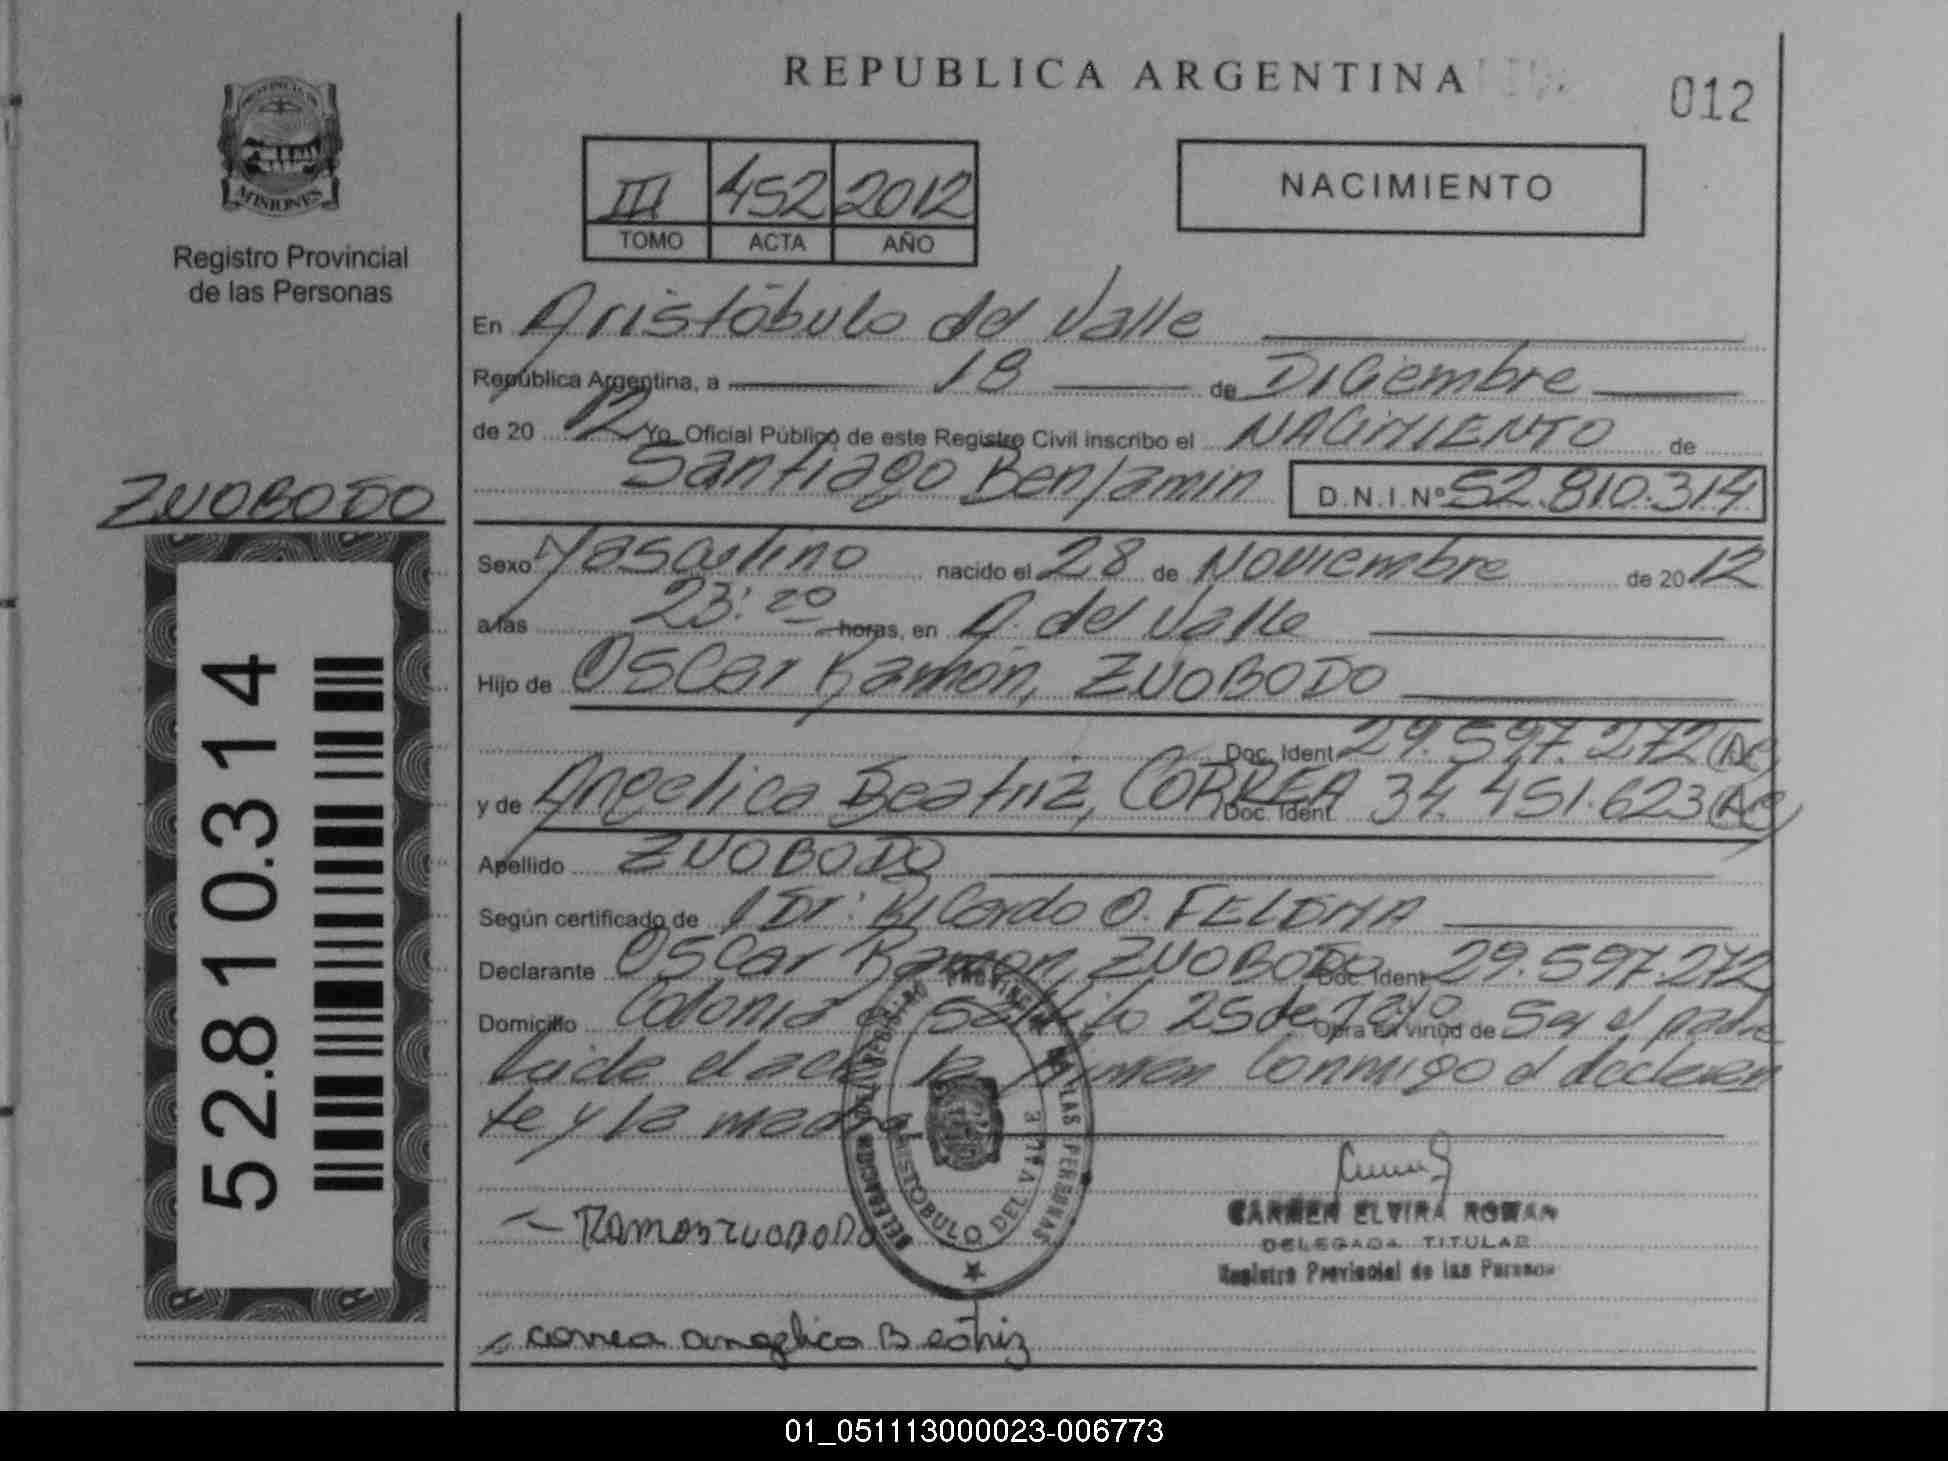 REPUBLICA ARGENTINA
012
MISIONES
Registro Provincial
de las Personas
III 452 2012
TOMO ACTA AÑO
NACIMIENTO
En Aristóbulo del Valle
República Argentina, a 18 de Diciembre
de 20 12 Yo, Oficial Público de este Registro Civil inscribo el NACIMIENTO de
Santiago Benjamin D.N.I.Nº 52.810.314
ZUOBODO
Sexo Masculino nacido el 28 de Noviembre de 20 12
a las 23:20 horas, en A. del Valle
Hijo de Oscar Ramón, ZUOBODO
Doc. Ident 29.597.272
y de Angelica Beatriz, CORREA Doc. Ident. 34.451.623
Apellido ZUOBODO
Según certificado de Dr: Ricardo O. FELDMA
Declarante Oscar Ramon, ZUOBODO Doc. Ident 29.597.272
Domicilio Colonia 25 de Mayo Obra en virtud de Ser el padre
el acta la conmigo el declaran
te y la madre
52.810.314
PROVINCIAL DE LAS PERSONAS
DELEGACION
ARISTOBULO DEL VALLE
CARMEN ELVIRA ROMAN
DELEGADA TITULAR
Registro Provincial de las Personas
Correa Angelica Beatriz
01_051113000023-006773